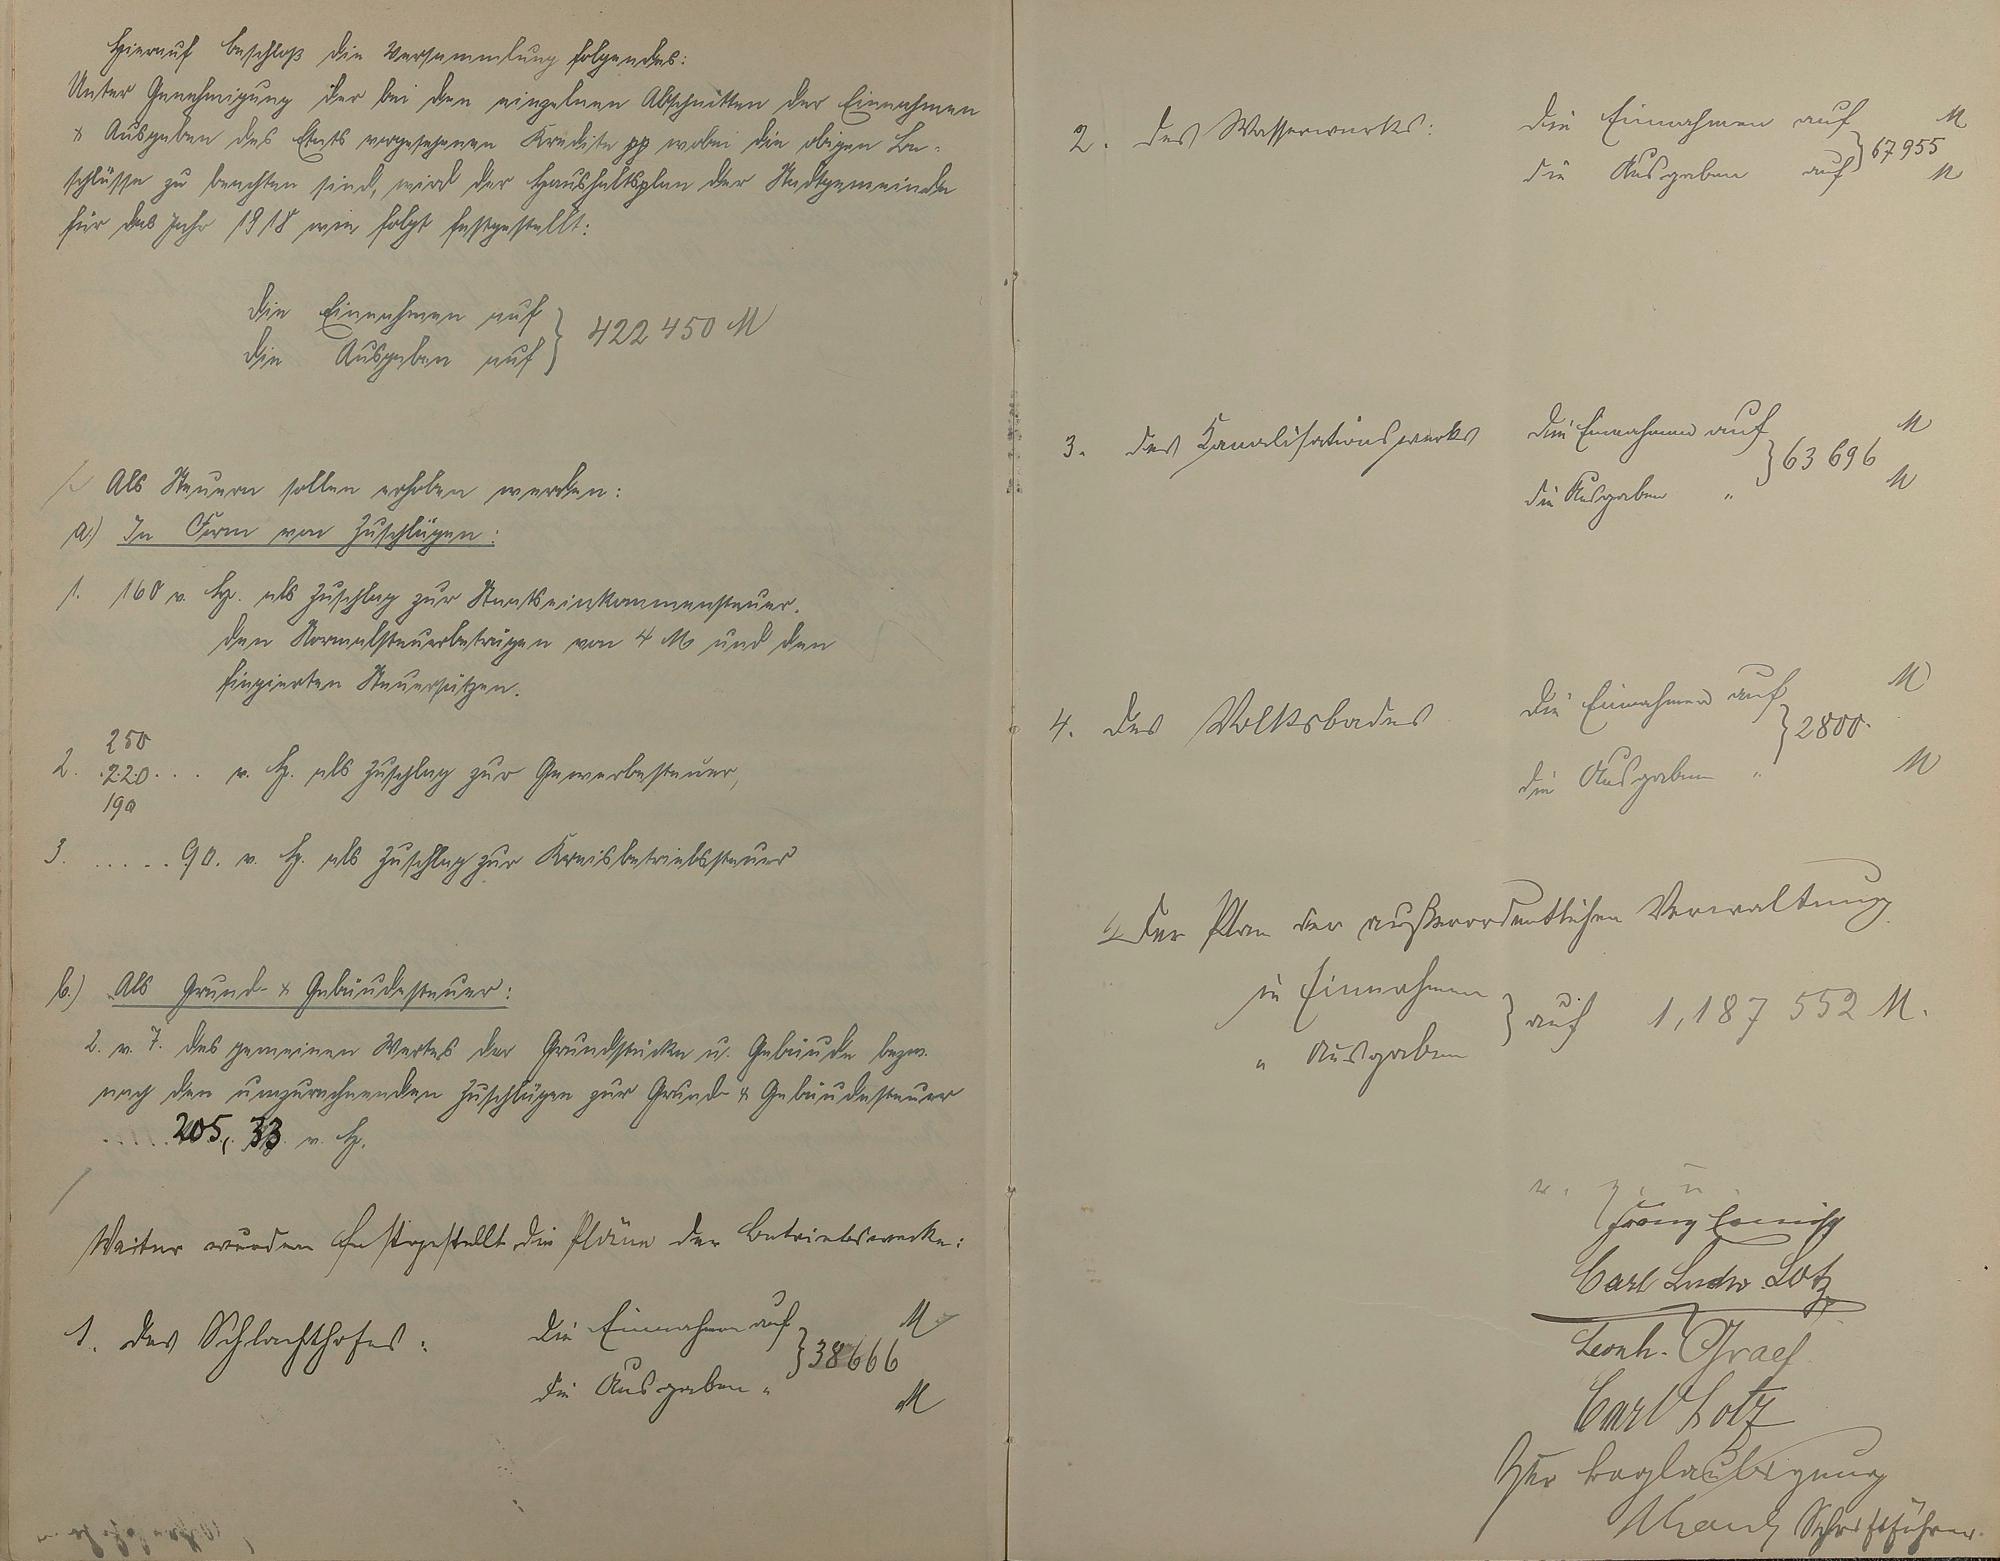 Hierauf beschloß die Versammlung folgendes:
Unter Genehmigung der bei den einzelnen Abschnitten der Einnahmen
& Ausgaben des Etats vorgesehenen Kredite pp wobei die obigen Be-
schlüsse zu beachten sind, wird der Haushaltsplan der Stadtgemeinde
für das Jahr 1918 wie folgt festgestellt:
die Einnahmen auf
die Ausgaben auf } 422 450 M
Als Steuern sollen erhoben werden:
a) In Form von Zuschlägen:
1. 160 v. H. als Zuschlag zur Staatseinkommensteuer.
den Normalsteuerbeträgen von 4 M und den
fingierten Steuersätzen.
250
2. 220 . . . v. H. als Zuschlag zur Gewerbesteuer,
190
3. . . . . . 90. v. H. als Zuschlag zur Kreisbetriebssteuer
b.) Als Grund- & Gebäudesteuer:
2. v. T. des gemeinen Wertes der Grundstücke u. Gebäude bezw.
nach den umzurechnenden Zuschlägen zur Grund- & Gebäudesteuer
. . . . . 205, 33 v. H.
Weiter wurden festgestellt die Pläne der Betriebswerke:
1. des Schlachthofes: die Einnahmen auf M
} 38666
die Ausgaben " M
2. des Wasserwerks: die Einnahmen auf M
} 67955
die Ausgaben auf M
3. des Kanalisationswerks die Einnahmen auf M
} 63 696
die Ausgaben " M
4. des Volksbades die Einnahmen auf M
} 2800.
die Ausgaben " M
Der Plan der außerordentlichen Verwaltung
in Einnahmen
} auf 1,187 552 M.
" Ausgaben
v. g. u.
Franz
Carl Ludw. Lotz
Leonh. Graef
Carl Lotz
Zur Beglaubigung
Schriftführer.